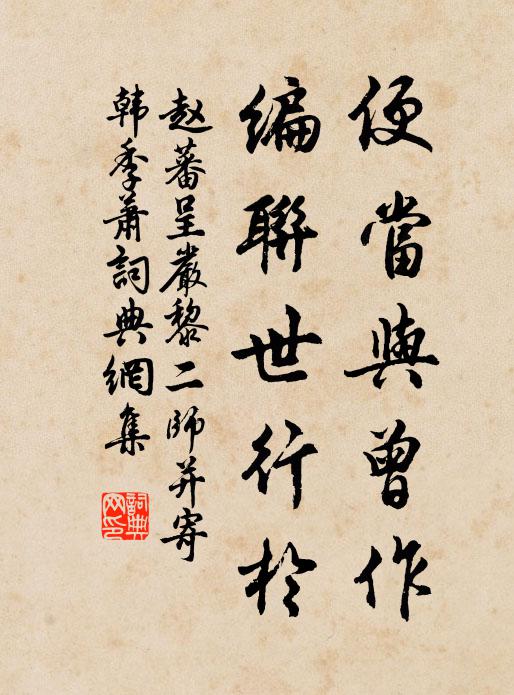 便當與曾作
編聯世行於
赵蕃呈嚴黎二師并寄
韩季蕭詞典網集
詞典网印